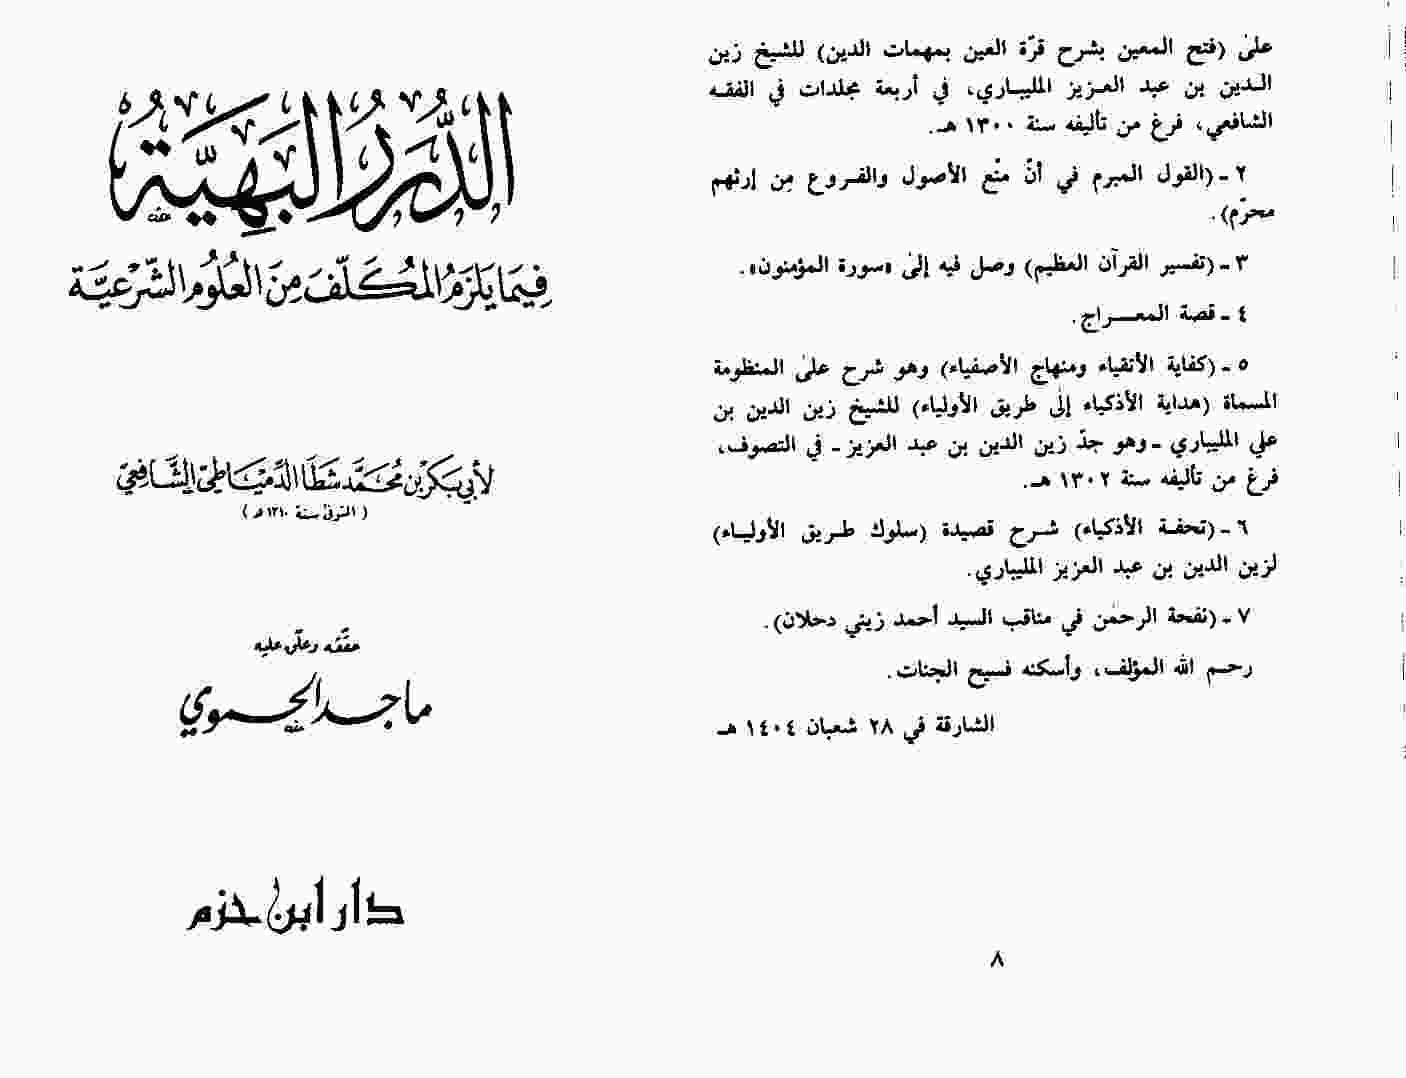 علىٰ (فتح المعين بشرح قرّة العين بمهمات الدين) للشيخ زين
الدين بن عبد العزيز المليباري، في أربعة مجلدات في الفقه
الشافعي، فرغ من تأليفه سنة ١٣٠٠ هـ.
٢ ـ (القول المبرم في أنّ منْع الأصول والفروع مِن إرثهم
محرّم).
٣ ـ (تفسير القرآن العظيم) وصل فيه إلىٰ «سورة المؤمنون».
٤ ـ قصة المعراج.
٥ ـ (كفاية الأتقياء ومنهاج الأصفياء) وهو شرح علىٰ المنظومة
المسماة (هداية الأذكياء إلىٰ طريق الأولياء) للشيخ زين الدين بن
علي المليباري ـ وهو جدّ زين الدين بن عبد العزيز ـ في التصوف،
فرغ من تأليفه سنة ١٣٠٢ هـ.
٦ ـ (تحفة الأذكياء) شرح قصيدة (سلوك طريق الأولياء)
لزين الدين بن عبد العزيز المليباري.
٧ ـ (نفحة الرحمٰن في مناقب السيد أحمد زيني دحلان).
رحم الله المؤلف، وأسكنه فسيح الجنات.
الشارقة في ٢٨ شعبان ١٤٠٤ هـ
٨
الدُّرَرُ البَهِيَّةُ
فِيمَا يَلزَمُ المُكَلَّفَ مِنَ العُلُومِ الشَّرْعِيَّة
لأبي بَكر بْن مُحَمَّد شَطَا الدِّمْيَاطِيّ الشَّافِعِيّ
( المتوفىٰ سنة ١٣١٠ هـ )
حقّقه وعلّق عليه
ماجد الحموي
دار ابن حزم